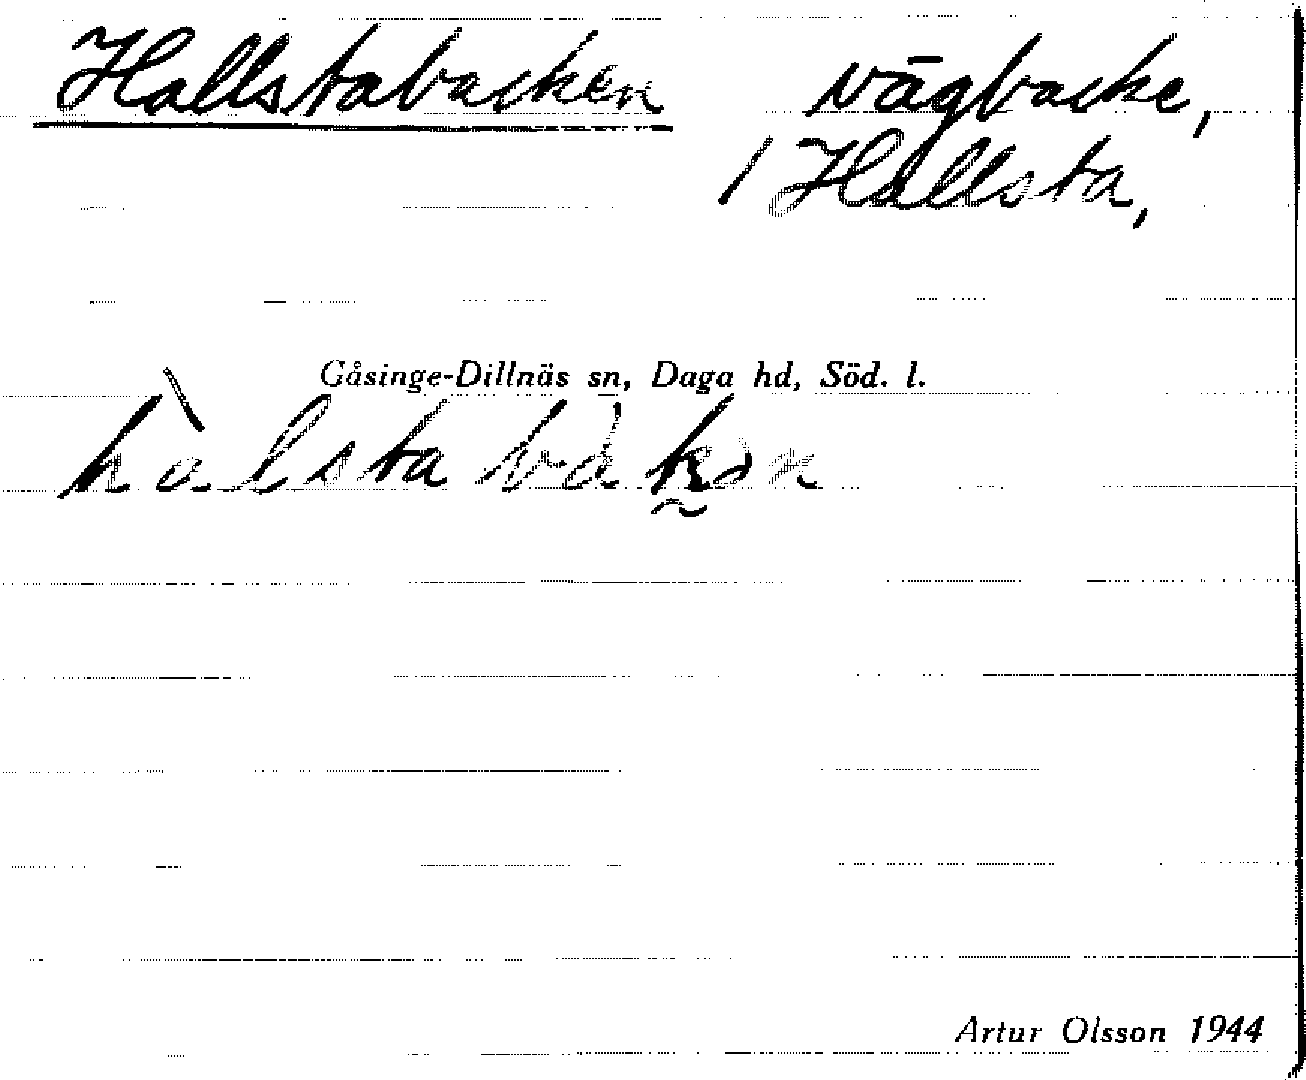 Hallstabacken vägbacke,
/ Hallsta,
Gåsinge-Dillnäs sn, Daga hd, Söd. l.
Artur Olsson 1944